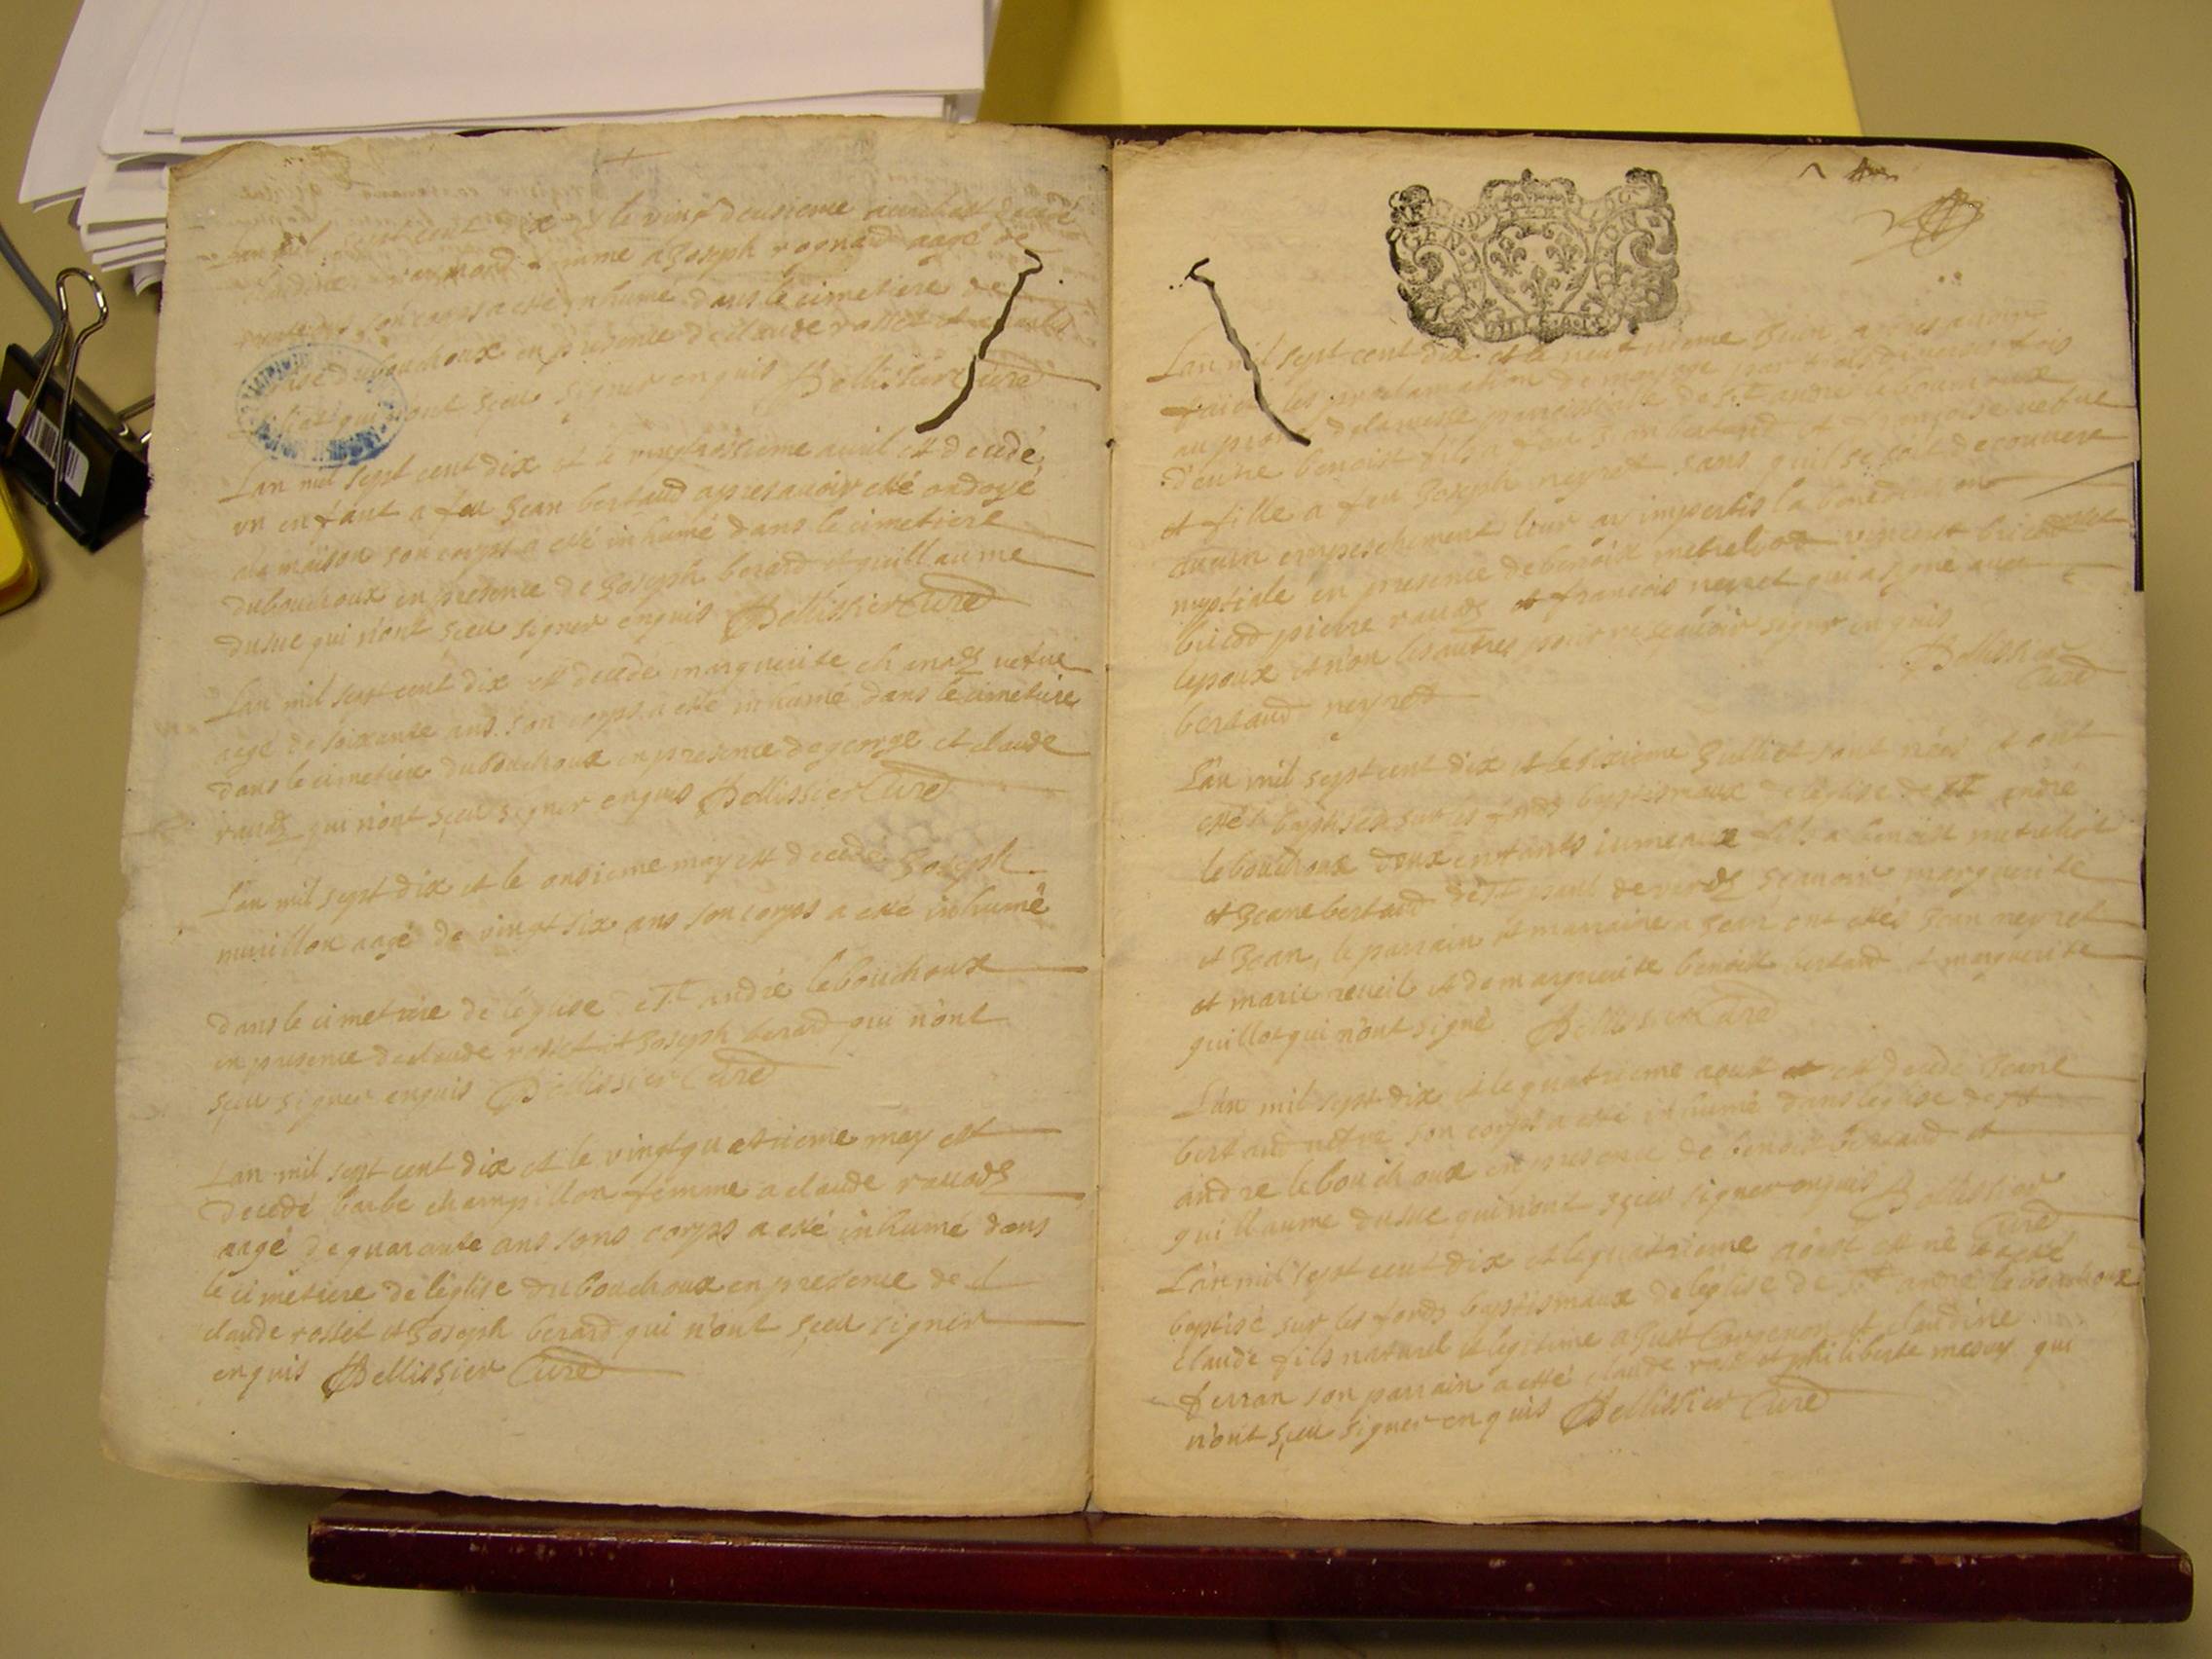 Lan mil sept cent dix et le vingt deusieme avril est decedé
femme a Joseph aagé de
son corps a esté inhumé dans le cimetiere de
du bouchoux en presence de claude rosset et
qui n'ont sceu signer enquis Bellissier Curé
Lan mil sept cent dix et le vingtroisieme avril est decedé
un enfant a feu Jean bertaud apres avoir esté ondoyé
a la maison son corps a esté inhumé dans le cimetiere
du bouchoux en presence de Joseph berard et guillaume
dusuc qui n'ont sceu signer enquis Bellissier Curé
Lan mil sept cent dix est decedé marguerite vefue
aagé de soixante ans son corps a esté inhumé dans le cimetiere
dans le cimetiere du bouchoux en presence de george et claude
ravadz qui n'ont sceu signer enquis Bellissier Curé
Lan mil sept dix et le onsieme may est decedé Joseph
murillon aagé de vingt six ans son corps a esté inhumé
dans le cimetiere de l'eglise St andré le bouchoux
en presence de claude rosset et Joseph berard qui n'ont
sceu signer enquis Bellissier Curé
Lan mil sept cent dix et le vingt quatrieme may est
decedé barbe champillon femme a claude ravadz
aagé de quarante ans sons corps a esté inhumé dans
le cimetiere de l'eglise du bouchoux en presence de
claude rosset et Joseph berard qui n'ont sceu signer
enquis Bellissier Curé
GEN DIJON
Lan mil sept cent dix et le neufuieme Juin apres avoir
fait les proclamation de mariage par trois diverses fois
au prosne de la messe parroissialle de St andré le bouchoux
d'entre benoist fils a feu Jean bertaud et françoise vefue
et fille a feu Joseph neyret sans qu'il se soit decouvert
aucun empeschement leur ay impertis la benediction
nuptiale en presence de benoist metreliod vincent bricod
bricod pierre ravadz et francois neyret qui a signé avec
lepoux et non les autres pour ne sçavoir signer enquis
Bellissier
Curé
bertaud neyret
Lan mil sept cent dix et le sixieme Julliet sont nées et ont
esté baptisés sur les fonds baptismaux de l'eglise de St andré
le bouchoux deux enfants iumeaux fils a benoist
et Jeane bertaud de St paul de sçavoir marguerite
et Jean, le parrain et marraine a Jean ont estés Jean neyret
et marie reveil et de marguerite benoist bertaud et marguerite
guillot qui n'ont signé Bellissier Curé
Lan mil sept dix et le quatrieme aoust est decedé Jeane
bertaud vefve son corps a esté inhumé dans l'eglise de St
andre le bouchoux en presence de benoist bertaud et
guillaume dusuc qui n'ont sceu signer enquis Bellissier
Curé
Lan mil sept cent dix et le quatrieme aoust est né et esté
baptisé sur les fonds baptismaux de l'eglise de St andré le bouchoux
claude fils naturel et legitime a Just et claudine
ferran son parrain a esté claude et philiberte qui
n'ont sceu signer enquis Bellissier Curé